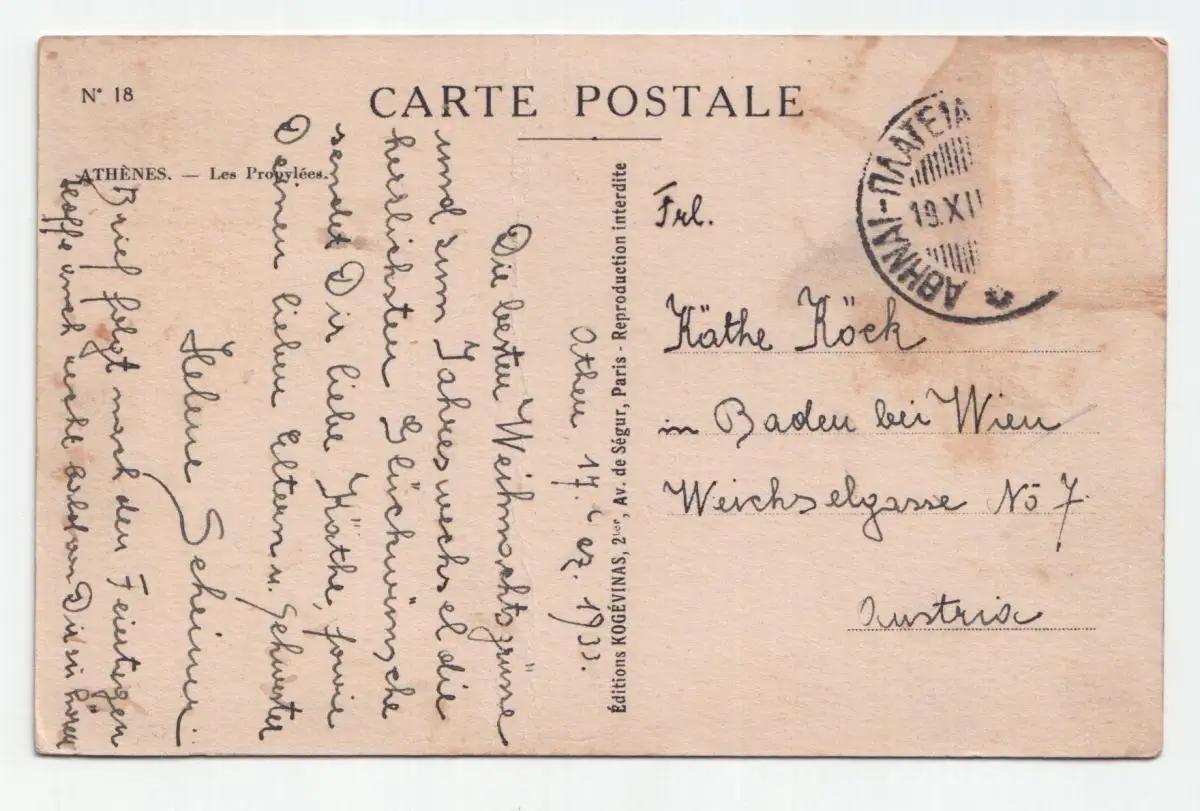 N° 18
CARTE POSTALE
ATHÈNES. — Les Propylées.
Athen 17. Dez. 1933.
Die besten Weihnachtsgrüße
und zum Jahreswechsel die
herrlichsten Glückwünsche
sendet Dir liebe Käthe, sowie
Deinen lieben Eltern u. Schwester
Helene Scheiner.
Brief folgt nach den Feiertagen
Hoffe auch recht bald von Dir zu hören
Éditions KOGÉVINAS, Av. de Ségur, Paris - Reproduction interdite
Frl.
Käthe Köck
in Baden bei Wien
Weichselgasse No 7.
Austria
ΑΘΗΝΑΙ-ΠΛΑΤΕΙΑ
19.XII